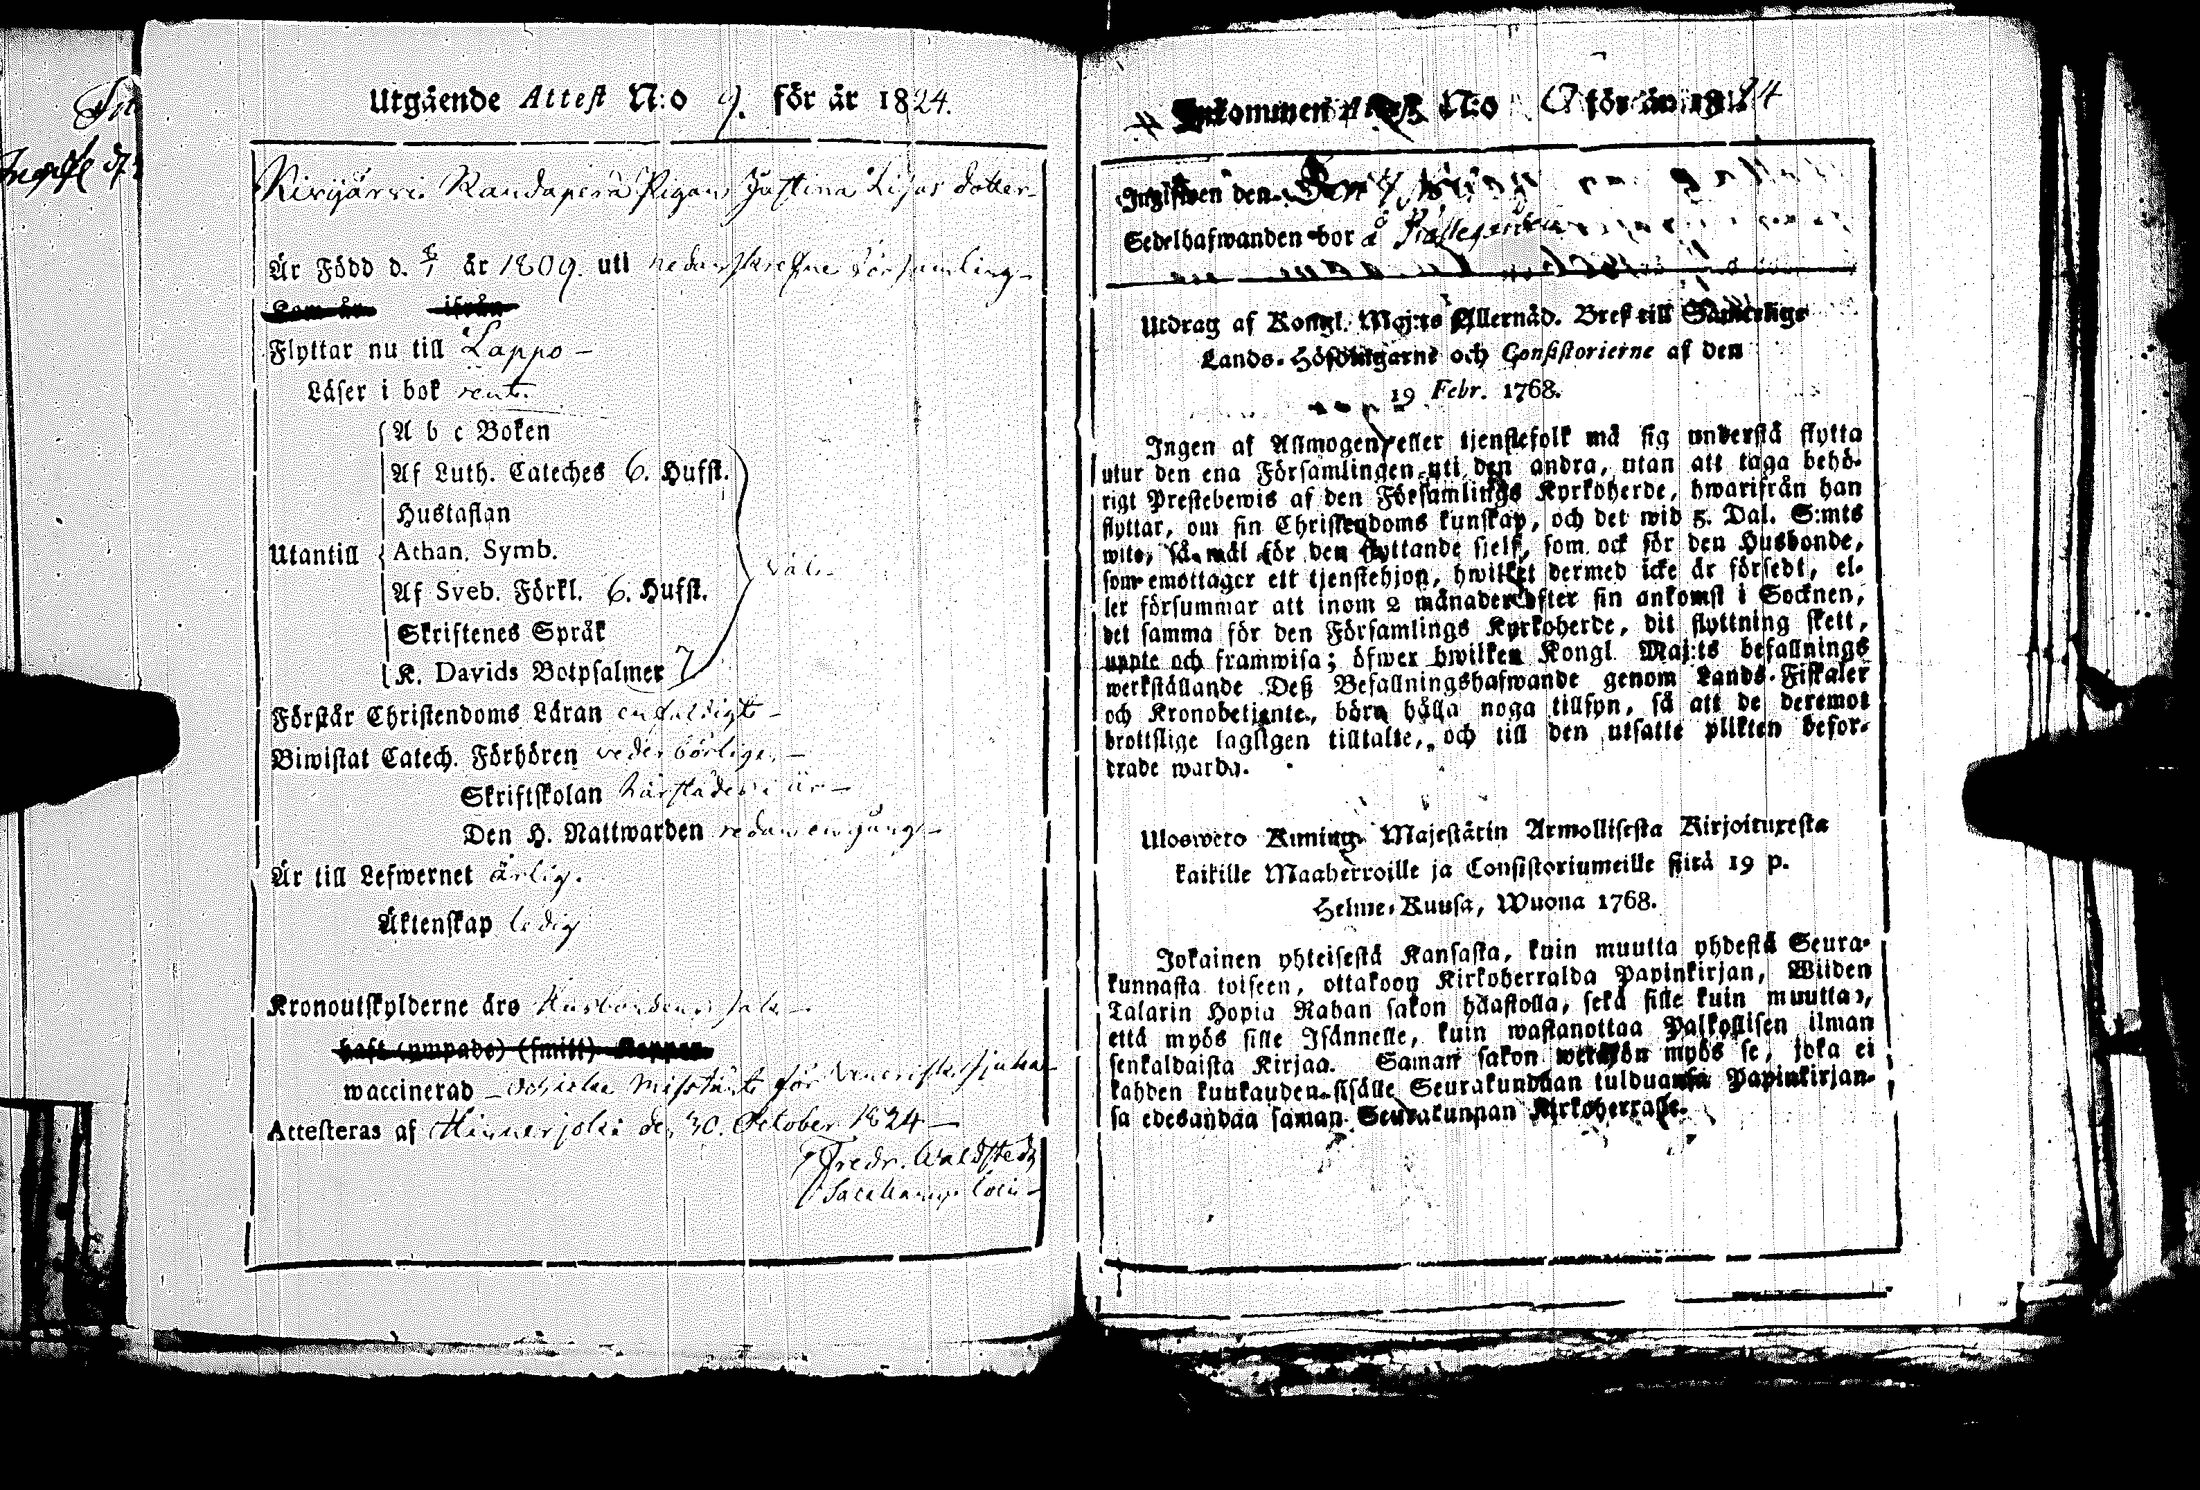 Utgående Attest N:o 9. för år 1824.
Kivijärvi Kandaperä Pigan Justina Lisas dotter
Är Född d. 8/1 år 1809. uti nedanskrefne Församling
Som är ifrån
Flyttar nu till Lappo
Läser i bok rent.
A b c Boken
Af Luth. Cateches 6. Hufst.
Hustaflan
Utantill
Athan. Symb.
väl
Af Sveb. Förkl. 6. Hufst.
Skriftenes Språk
K. Davids Botpsalmer 7
Förstår Christendoms Läran enfaldigt
Biwistat Catech. Förhören vederbörligen
Skriftskolan härstädes i år
Den H. Nattwarden redan en gång
Är till Lefwernet ärlig.
Äktenskap ledig
Kronoutskylderne äro Husbondens sak
haft (ympade) (smitt) Koppor
waccinerad och icke misstänkt för Venerisk sjuka
Attesteras af Hinnerjoki den 30. October 1824
Fredr. Waldstedt
Inkommen Attest N:o för år 1824
Ingifwen den
Sedelhafwanden bor å
Utdrag af Kongl. Maj:ts Allernåd. Bref till Samtelige
Lands-Höfdingarne och Consistorierne af den
19 Febr. 1768.
Ingen af Allmogen eller tjenstefolk må sig understå flytta
utur den ena Församlingen uti den andra, utan att taga behö-
rigt Prestebewis af den Församlings Kyrkoherde, hwarifrån han
flyttar, om sin Christendoms kunskap, och det wid 5. Dal. S:mts
wite, så mäl för den flyttande sjelf, som ock för den Husbonde,
som emottager ett tjenstehjon, hwilket dermed icke är försedt, el-
ler försummar att inom 2 månader efter sin ankomst i Socknen,
det samma för den Församlings Kyrkoherde, dit flyttning skett,
uppte och framwisa; öfwer hwilken Kongl. Maj:ts befallnings
werkställande Deß Befallningshafwande genom Lands-Fiskaler
och Kronobetjente, böra hålla noga tillsyn, så att de deremot
brottslige lagligen tilltalte, och till den utsatte plikten befor-
drade warda.
Uloswero Kuning. Majestätin Armollisesta Kirjoituxesta
kaikille Maaherroille ja Consistoriumeille siitä 19 p.
Helme-Kuusa, Wuona 1768.
Jokainen yhteisestä Kansasta, kuin muutta yhdestä Seura-
kunnasta toiseen, ottakoon Kirkoherralda Papinkirjan, Wiiden
Talarin Hopia Rahan sakon haastolla, sekä sille kuin muuttaa,
että myös sille Isännelle, kuin wastanottaa Palkollisen ilman
senkaldaista Kirjaa. Saman sakon wetäkön myös se, joka ei
kahden kuukauden sisälle Seurakundaan tulduansa Papinkirjan-
sa edesandaa saman Seurakunnan Kirkoherralle.